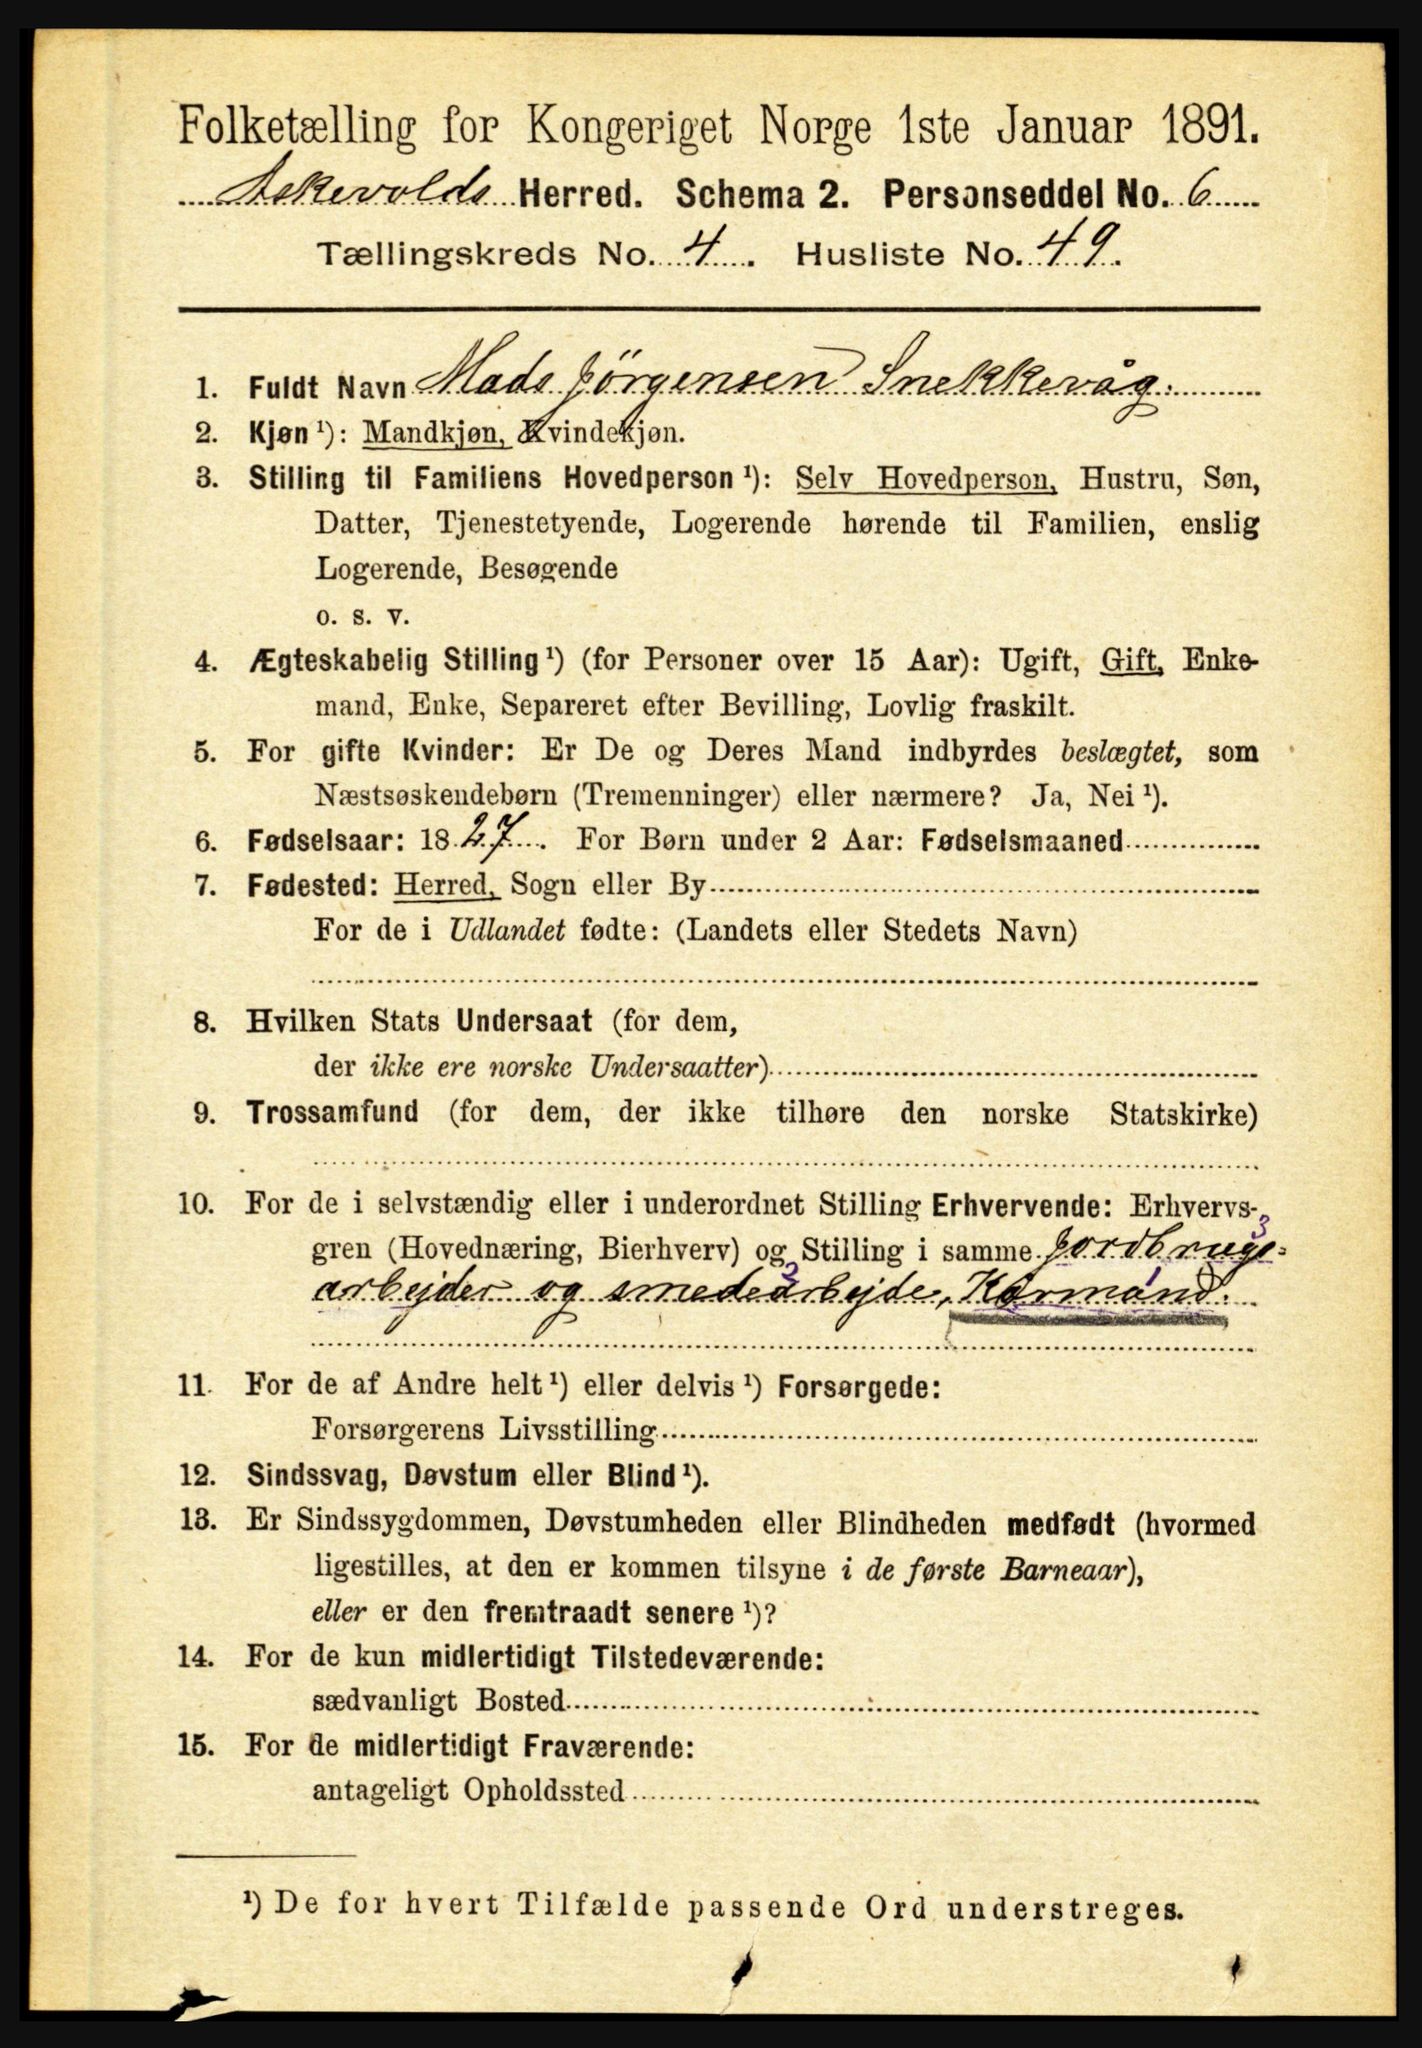 Folketælling for Kongeriget Norge 1ste Januar 1891.
Askevolds Herred. Schema 2. Personseddel No. 6
Tællingskreds No. 4. Husliste No. 49.
1. Fuldt Navn Mads Jörgensen Snekkevåg.
2. Kjøn ¹): Mandkjøn, Kvindekjøn.
3. Stilling til Familiens Hovedperson ¹): Selv Hovedperson, Hustru, Søn,
Datter, Tjenestetyende, Logerende hørende til Familien, enslig
Logerende, Besøgende
o. s. v.
4. Ægteskabelig Stilling ¹) (for Personer over 15 Aar): Ugift, Gift, Enke-
mand, Enke, Separeret efter Bevilling, Lovlig fraskilt.
5. For gifte Kvinder: Er De og Deres Mand indbyrdes beslægtet, som
Næstsøskendebørn (Tremenninger) eller nærmere? Ja, Nei ¹).
6. Fødselsaar: 1827. For Børn under 2 Aar: Fødselsmaaned
7. Fødested: Herred, Sogn eller By
For de i Udlandet fødte: (Landets eller Stedets Navn)
8. Hvilken Stats Undersaat (for dem,
der ikke ere norske Undersaatter)
9. Trossamfund (for dem, der ikke tilhøre den norske Statskirke)
10. For de i selvstændig eller i underordnet Stilling Erhvervende: Erhvervs-
gren (Hovednæring, Bierhverv) og Stilling i samme Jordbrugs-
arbejder og smedearbejde, Kårmand.
11. For de af Andre helt ¹) eller delvis ¹) Forsørgede:
Forsørgerens Livsstilling
12. Sindssvag, Døvstum eller Blind ¹).
13. Er Sindssygdommen, Døvstumheden eller Blindheden medfødt (hvormed
ligestilles, at den er kommen tilsyne i de første Barneaar),
eller er den fremtraadt senere ¹)?
14. For de kun midlertidigt Tilstedeværende:
sædvanligt Bosted
15. For de midlertidigt Fraværende:
antageligt Opholdssted
¹) De for hvert Tilfælde passende Ord understreges.